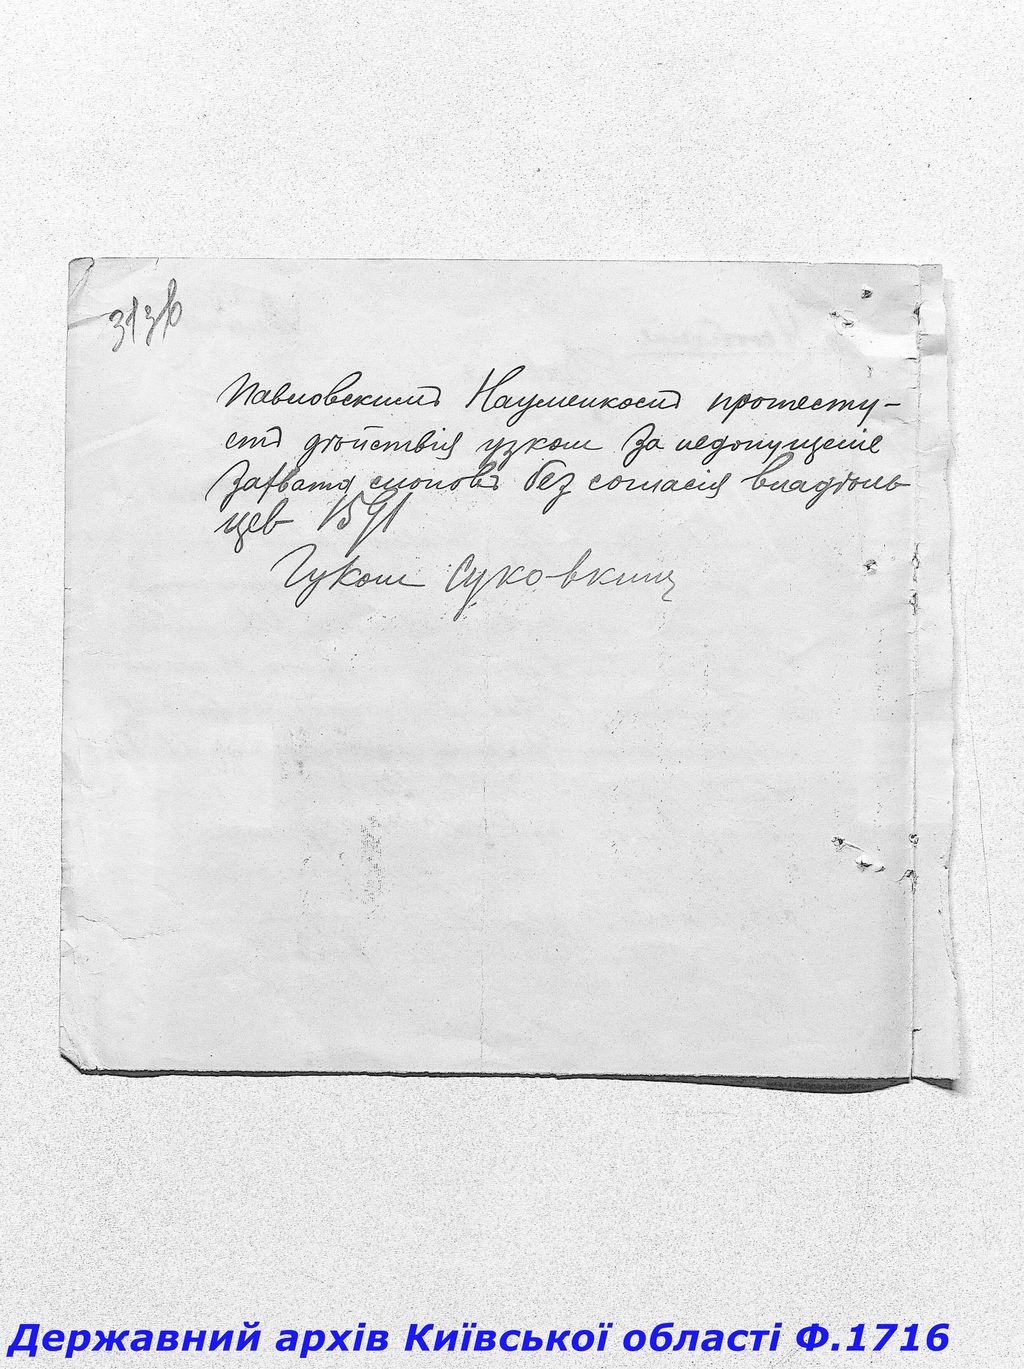 313 об
Павловскимъ Науменкомъ протесту-
етъ дѣйствія узком за недопущеніе
захвата сноповъ без согласія владѣль
цев 1591
Гуком Суковкинъ
Державний архів Київської області Ф.1716